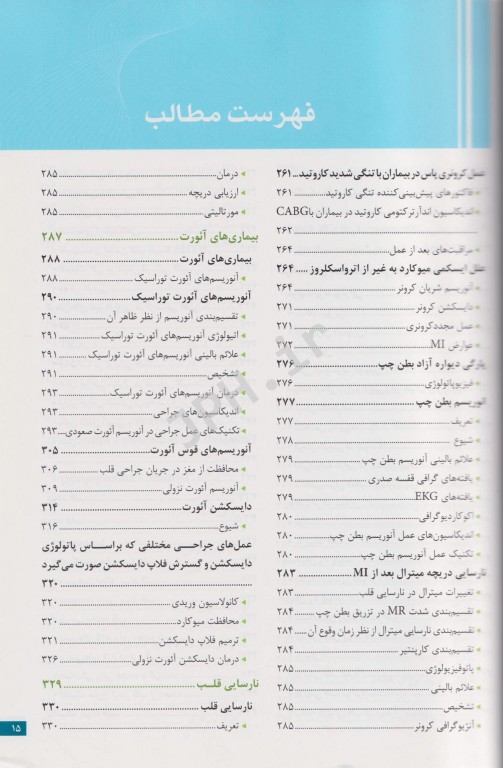 فهرست مطالب
عمل کرونری پاس در بیماران با تنگی شدید کاروتید..۲۶۱
فاکتورهای پیش‌بینی‌کننده تنگی کاروتید........۲۶۱
اندیکاسیون اندآرترکتومی کاروتید در بیماران با CABG
۲۶۲
مراقبت‌های بعد از عمل........۲۶۴
علل ایسکمی میوکارد به غیر از اترواسکلروز.....۲۶۴
آنوریسم شریان کرونر........۲۶۴
دایسکشن کرونر........۲۷۱
عمل مجدد کرونری........۲۷۱
عوارض MI........۲۷۲
پارگی دیواره آزاد بطن چپ........۲۷۶
فیزیوپاتولوژی........۲۷۶
آنوریسم بطن چپ........۲۷۷
تعریف........۲۷۷
شیوع........۲۷۸
علائم بالینی آنوریسم بطن چپ........۲۷۹
یافته‌های گرافی قفسه صدری........۲۷۹
یافته‌های EKG........۲۷۹
اکوکاردیوگرافی........۲۸۰
اندیکاسیون‌های عمل آنوریسم بطن چپ........۲۸۰
تکنیک عمل آنوریسم بطن چپ........۲۸۰
نارسایی دریچه میترال بعد از MI........۲۸۳
تغییرات میترال در نارسایی قلب........۲۸۳
تقسیم‌بندی شدت MR در تزریق بطن چپ........۲۸۴
تقسیم‌بندی نارسایی میترال از نظر زمان وقوع آن.....۲۸۴
تقسیم‌بندی کارپنتیر........۲۸۴
پاتوفیزیولوژی........۲۸۵
علائم بالینی........۲۸۵
تشخیص........۲۸۵
آنژیوگرافی کرونر........۲۸۵
درمان........۲۸۵
ارزیابی دریچه........۲۸۵
مورتالیتی........۲۸۵
بیماری‌های آئورت........۲۸۷
بیماری‌های آئورت........۲۸۸
آنوریسم‌های آئورت توراسیک........۲۸۸
آنوریسم‌های آئورت توراسیک........۲۹۰
تقسیم‌بندی آنوریسم از نظر ظاهر آن........۲۹۰
اتیولوژی آنوریسم‌های آئورت توراسیک........۲۹۱
علائم بالینی آنوریسم‌های آئورت توراسیک........۲۹۱
تشخیص........۲۹۱
درمان آنوریسم‌های آئورت توراسیک........۲۹۳
اندیکاسیون‌های جراحی........۲۹۳
تکنیک‌های عمل جراحی در آنوریسم آئورت صعودی....۲۹۳
آنوریسم‌های قوس آئورت........۳۰۵
محافظت از مغز در جریان جراحی قلب........۳۰۶
آنوریسم آئورت نزولی........۳۰۹
دایسکشن آئورت........۳۱۴
شیوع........۳۱۶
عمل‌های جراحی مختلفی که براساس پاتولوژی
دایسکشن و گسترش فلاپ دایسکشن صورت می‌گیرد
........۳۲۰
کانولاسیون وریدی........۳۲۰
محافظت میوکارد........۳۲۰
ترمیم فلاپ دایسکشن........۳۲۱
درمان دایسکشن آئورت نزولی........۳۲۶
نارسایی قلب........۳۲۹
نارسایی قلب........۳۳۰
تعریف........۳۳۰
۱۵
JPH.ir